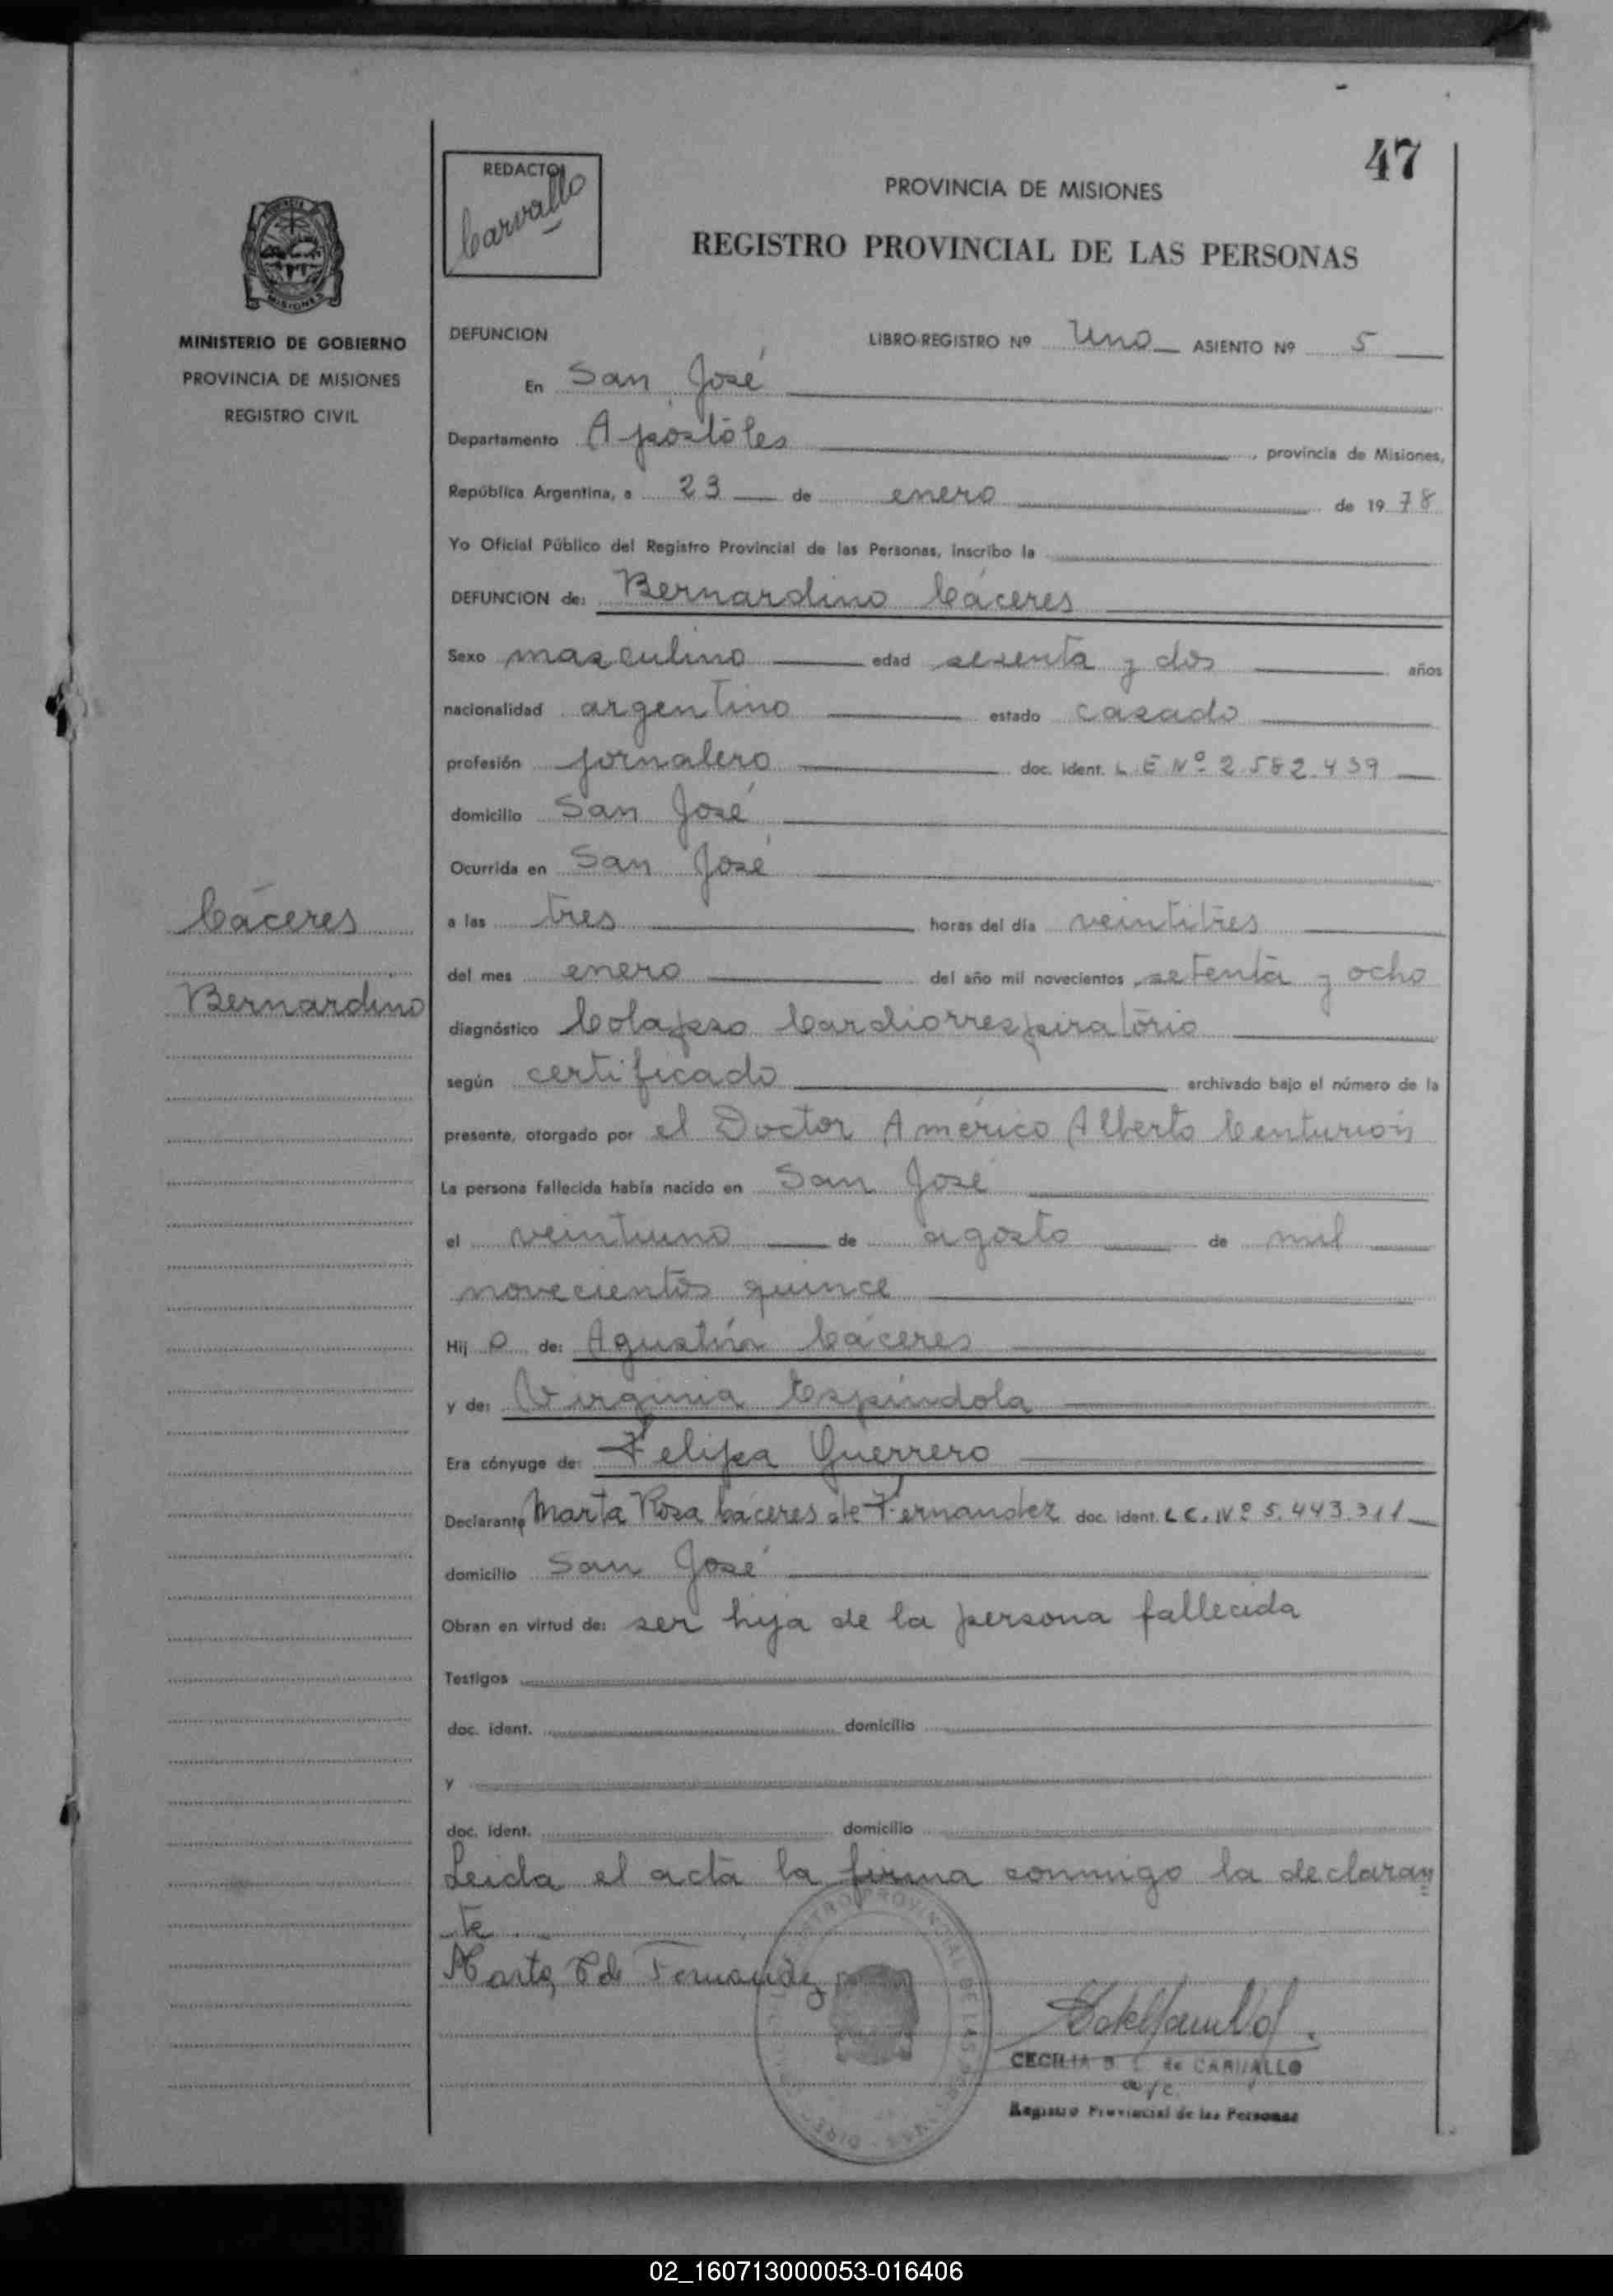 47
REDACTO
Carvallo
PROVINCIA DE MISIONES
REGISTRO PROVINCIAL DE LAS PERSONAS
MISIONES
MINISTERIO DE GOBIERNO
PROVINCIA DE MISIONES
REGISTRO CIVIL
DEFUNCION LIBRO-REGISTRO Nº Uno ASIENTO Nº 5
En San José
Departamento Apóstoles, provincia de Misiones,
República Argentina, a 23 de enero de 1978
Yo Oficial Público del Registro Provincial de las Personas, inscribo la
DEFUNCION de: Bernardino Cáceres
Sexo masculino edad sesenta y dos años
nacionalidad argentino estado casado
profesión jornalero doc. ident. L.E Nº 2.582.459
domicilio San José
Ocurrida en San José
Cáceres
Bernardino
a las tres horas del día veintitres
del mes enero del año mil novecientos setenta y ocho
diagnóstico Colapso Cardiorrespiratorio
según certificado archivado bajo el número de la
presente, otorgado por el Doctor Américo Alberto Centurión
La persona fallecida había nacido en San José
el veintiuno de agosto de mil
novecientos quince
Hij o de: Agustín Cáceres
y de: Virginia Espíndola
Era cónyuge de: Felipa Guerrero
Declarante Marta Rosa Cáceres de Fernandez doc. ident. L.C. Nº 5.443.311
domicilio San José
Obran en virtud de: ser hija de la persona fallecida
Testigos
doc. ident. domicilio
y
doc. ident. domicilio
Leida el acta la firma conmigo la declaran
te
Marta C de Fernández
CECILIA B. de CARVALLO
a/c.
Registro Provincial de las Personas
02_160713000053-016406